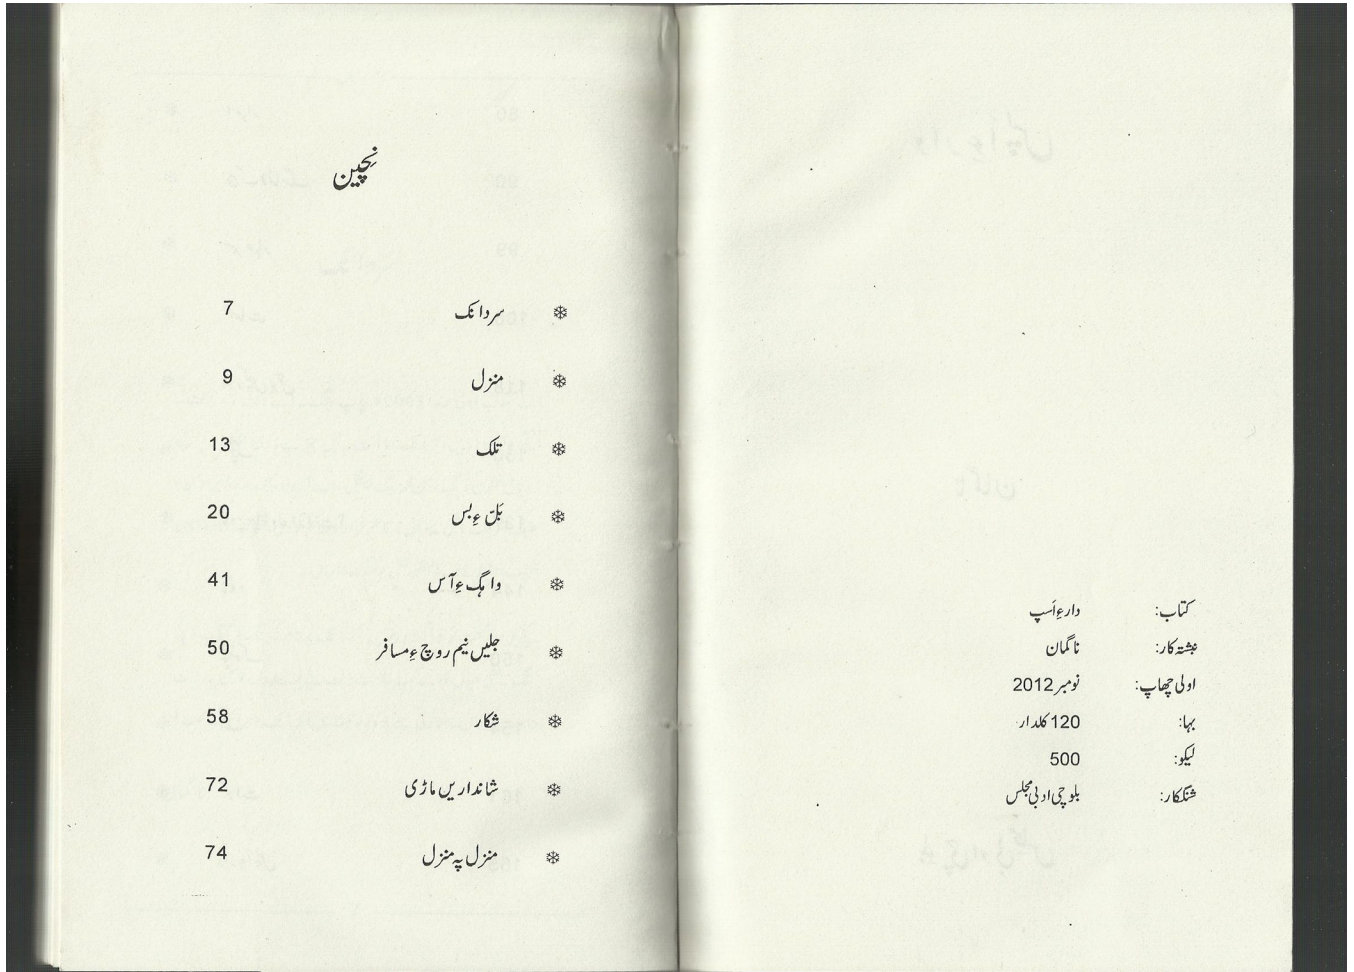 کتاب: دارءِ اَسپ
نبشتہ کار: ناگمان
اولی چھاپ: نومبر 2012
بہا: 120 کلدار
لیکو: 500
شنکار: بلوچی ادبی مجلس
نِچین
❄ سردانک 7
❄ منزل 9
❄ تلک 13
❄ بَلّ ءِ بس 20
❄ واہگ ءِ آس 41
❄ جلیں نیم روچ ءِ مسافر 50
❄ شکار 58
❄ شانداریں ماڑی 72
❄ منزل پہ منزل 74